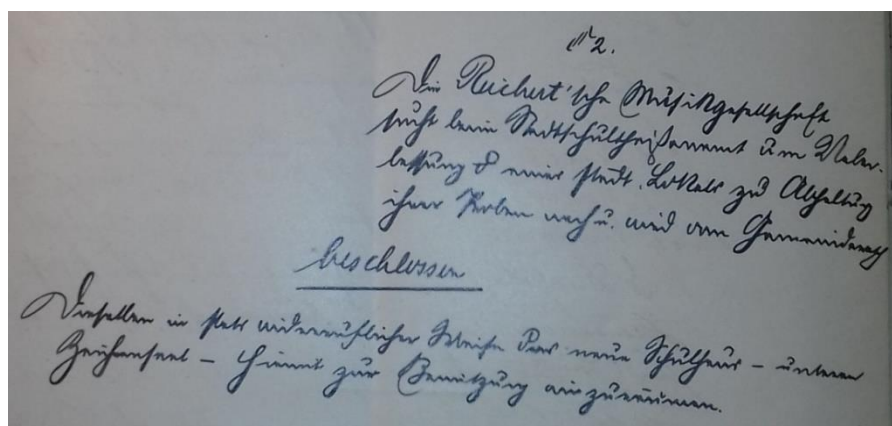 § 2.
Die Reichert'sche Musikgesellschaft
sucht beim Stadtschultheißenamt um Ueber-
lassung eines städt. Lokals zu Abhaltung
ihrer Proben nach u. wird vom Gemeinderath
beschlossen
Derselben in stets widerruflicher Weise das neue Schulhaus – unteren
Zeichensaal – hiemit zur Benützung einzuräumen.